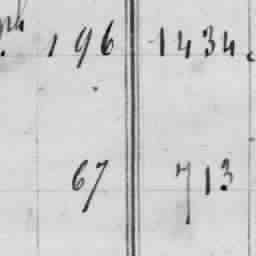 ph 196 1434.
67 713